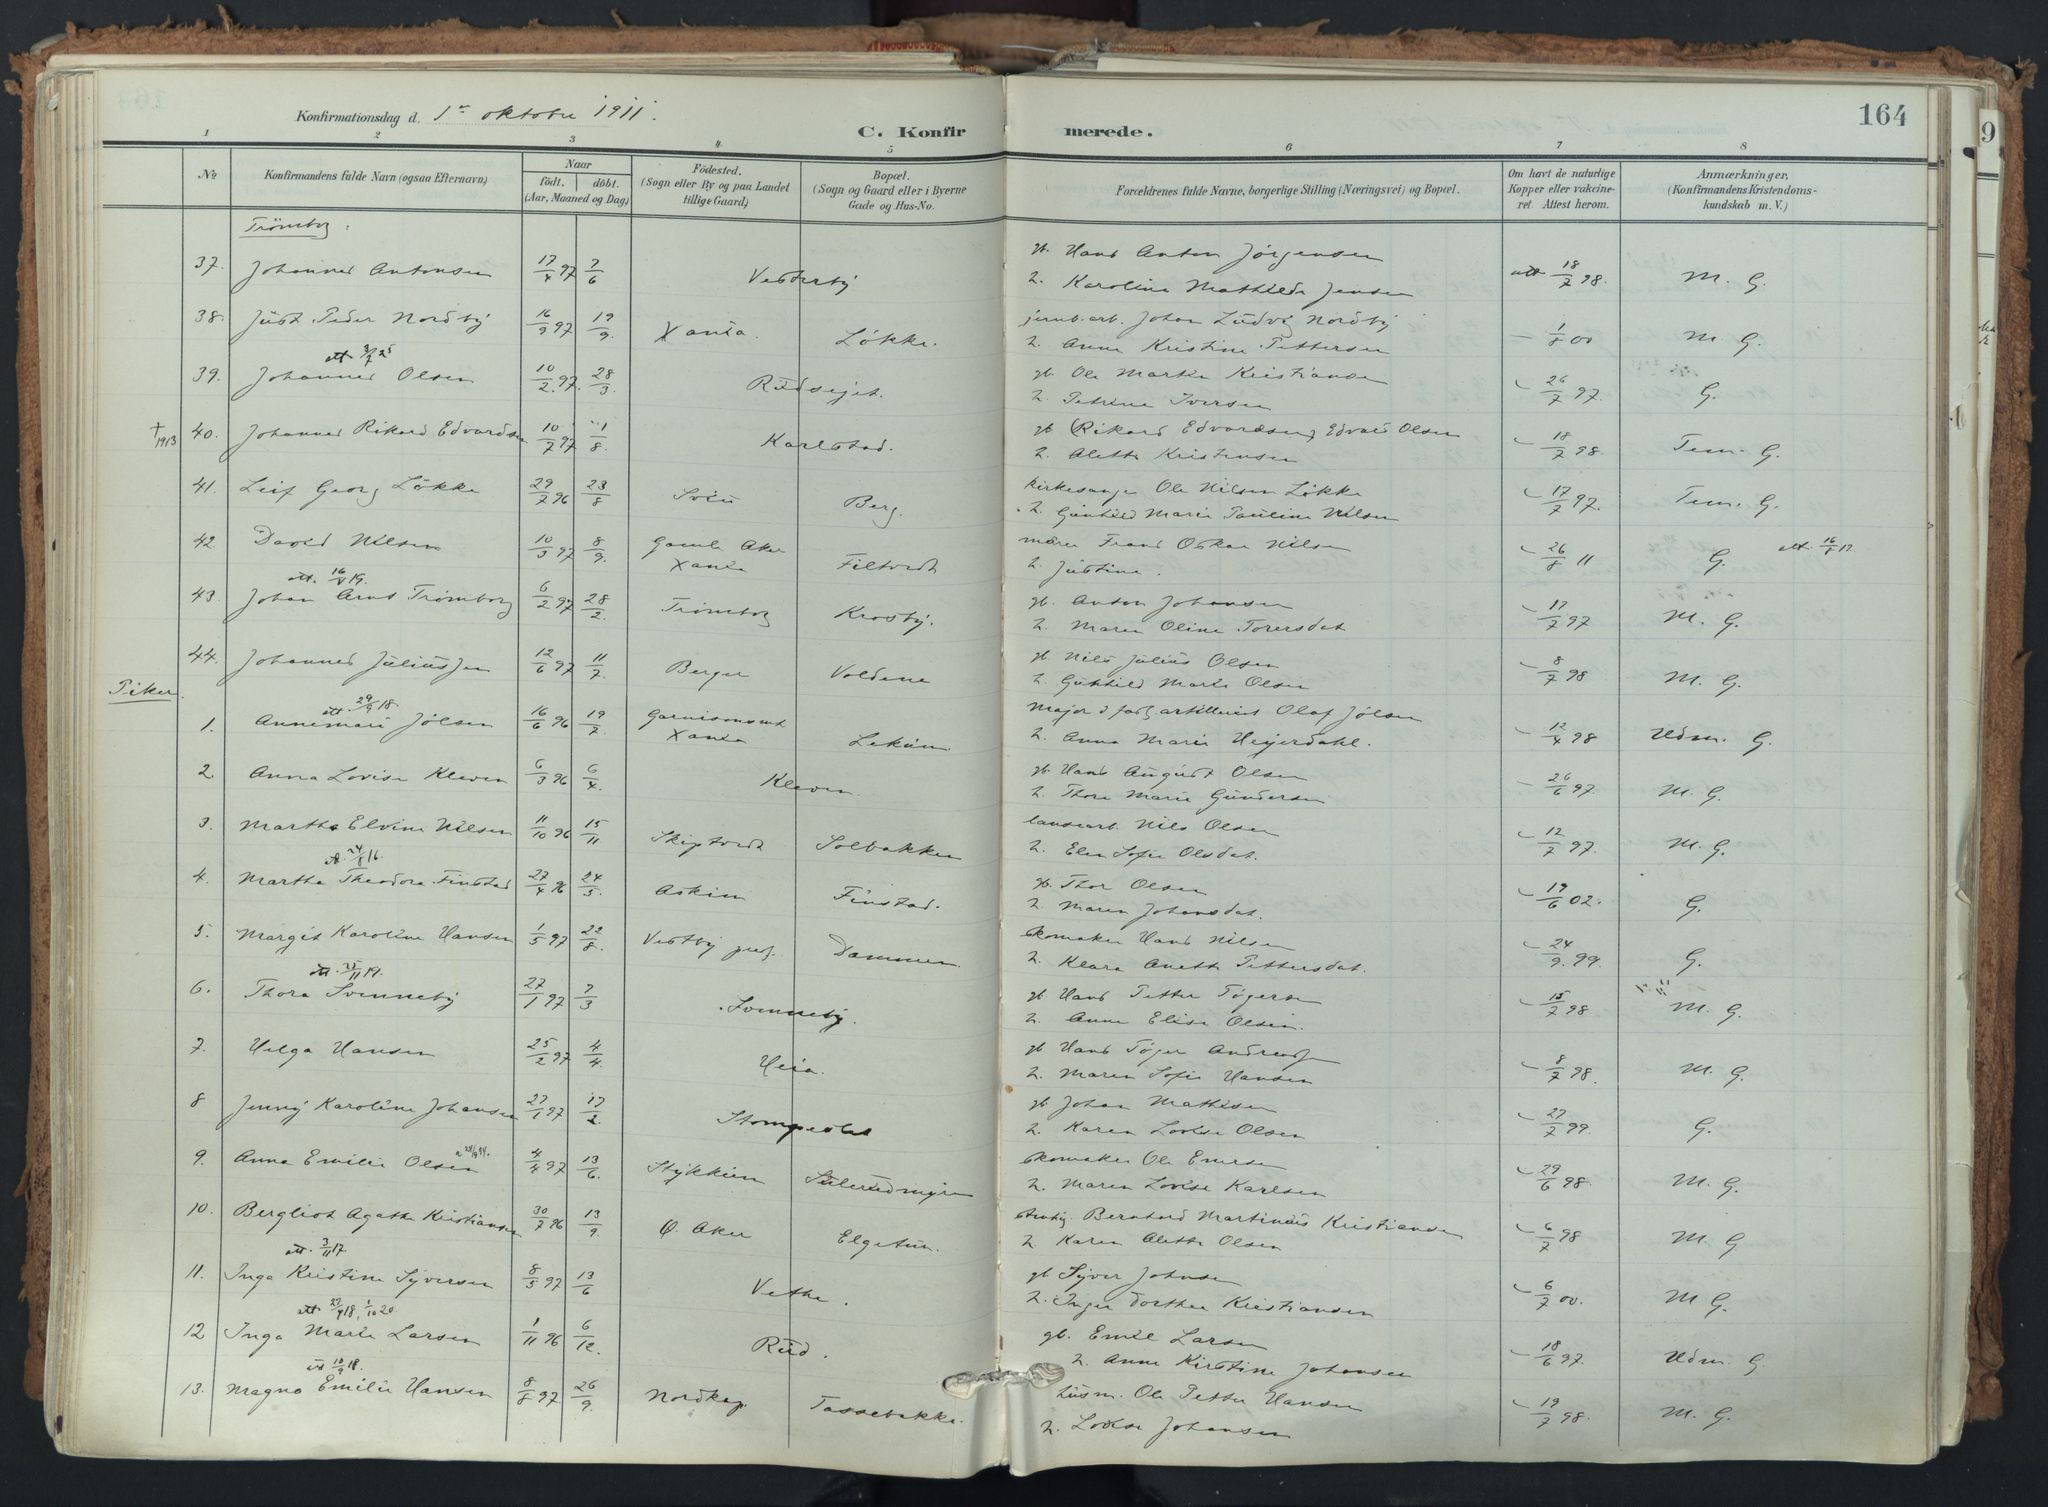 Konfirmationsdag d. 1ste oktober 1911.
C. Konfirmerede.
164
1 2 3 4 5 6 7 8
No
Konfirmandens fulde Navn (ogsaa Efternavn)
Naar
födt. döbt.
(Aar, Maaned og Dag)
Födested.
(Sogn eller By og paa Landet tillige Gaard)
Bopæl.
(Sogn og Gaard eller i Byerne Gade og Hus-No.
Forældrenes fulde Navne, borgerlige Stilling (Næringsvei) og Bopæl.
Om havt de naturlige Kopper eller vakcineret. Attest herom.
Anmærkninger,
(Konfirmandens Kristendomskundskab m. V.)
Trømborg.
37. Johannes Antonsen 17/4 97 7/6 Vesterby gb. Hans Anton Jørgensen att 18/7 98. M. G.
h. Karoline Mathilde Jensen
38. Just Peder Nordby 16/9 97 19/9 Xania. Løkke. jernb.arb. Johan Ludvig Nordby 1/8 00 M. G.
h. Anne Kristine Pettersen
att 3/7 25
39. Johannes Olsen 10/2 97. 28/3. Rudsejet. gb. Ole Martin Kristiansen 26/7 97. G.
h. Petrine Iversen
† 1913 40. Johannes Rikard Edvardsen 10/7 97 1/8. Karlstad. gb (Rikard Edvardsen) Edvard Olsen 18/7 98. Tem. G.
h. Alette Kristensen
41. Leif Georg Løkke 29/7 96 23/8 Berg. kirkesanger Ole Nilsen Løkke 17/7 97. Tem. G.
h. Gunhild Marie Pauline Nilsen
42 David Nilsen 10/3 97 8/9. Gamle Aker Xania murer Frans Oskar Nilsen 26/8 11 G.
h. Justine.
att. 16/8 19.
43. Johan Arnt Trømborg 6/2 97 28/2. Trømborg Krosby. gb. Anton Johansen 17/7 97 M. G.
h. Maren Oline Torersdat
44. Johannes Juliussen 12/6 97 11/7 Berger Voldene gb Nils Julius Olsen 8/7 98 M. G.
h. Gunhild Marie Olsen
Piker.
att. 29/9 18
1. Annemari Jølsen 16/6 96 19/7 Garnisonsmt Xania Lekum Major i Olaf Jølsen 12/4 98 Udm. G.
h. Anna Marie Heyerdahl.
2 Anna Lovise Kleven 6/3 96 6/4. Kleven. gb. Hans August Olsen 26/6 97. M. G.
h. Thora Marie Gundersen
3. Martha Elvine Nilsen 11/10 96 15/11 Skiptvedt Solbakken Nils Olsen 12/7 97. M. G.
h. Elen Sofie Olsdat.
att. 24/8 16.
4. Martha Theodora Finstad 27/4 96 24/5. Askim Finstad. gb. Thor Olsen 19/6 02. G.
h. Maren Johansdat.
5. Margit Karoline Hansen 1/5 97 22/8. Vestby Dammen. skomaker Hans Nilsen 24/9. 99. G.
h. Klara Anette Pettersdat.
att. 19.
6. Thora Svenneby 27/1 97 7/3 Svenneby. gb Hans Petter Tøgersen 15/7 98 M. G.
h. Anne Elise Olsen.
7. Helga Hansen 25/2 97 4/4 Heia. gb Hans Tøger Andreassen 8/7 98. M. G.
h. Maren Sofie Hansen
8 Jenny Karoline Johansen 27/1 97 17/2. gb. Johan Mathisen 27/7 99. G.
h. Karen Lovise Olsen
9. Anna Emilie Olsen 4/4 97 13/6. Stykkien skomaker Ole Enersen 29/6 98. M. G.
h. Maren Lovise Karlsen
10. Bergliot Agathe Kristiansen 30/7 96 13/9 Ø. Aker Elgetun. Bernhard Martinius Kristiansen 6/7 98 M. G
h. Karen Alette Olsen
att. 3/11 17
11. Inga Kristine Syversen 8/5 97 13/6 Vethe. gb Syver Johnsen 6/7 00. M G.
h. Inger Dorthea Kristiansen
att 27/9 18, 1/10 20.
12 Inga Marie Larsen 1/11 96 6/12. Rud. gb. Emil Larsen 18/6 97. Udm. G
h. Anne Kirstine Johansen
att 10/9 18.
13. Magna Emilie Hansen 8/8 97 26/9. Nordkap Tassebakke. husm. Ole Petter Hansen 19/7 98. M. G.
h. Lovise Johansen